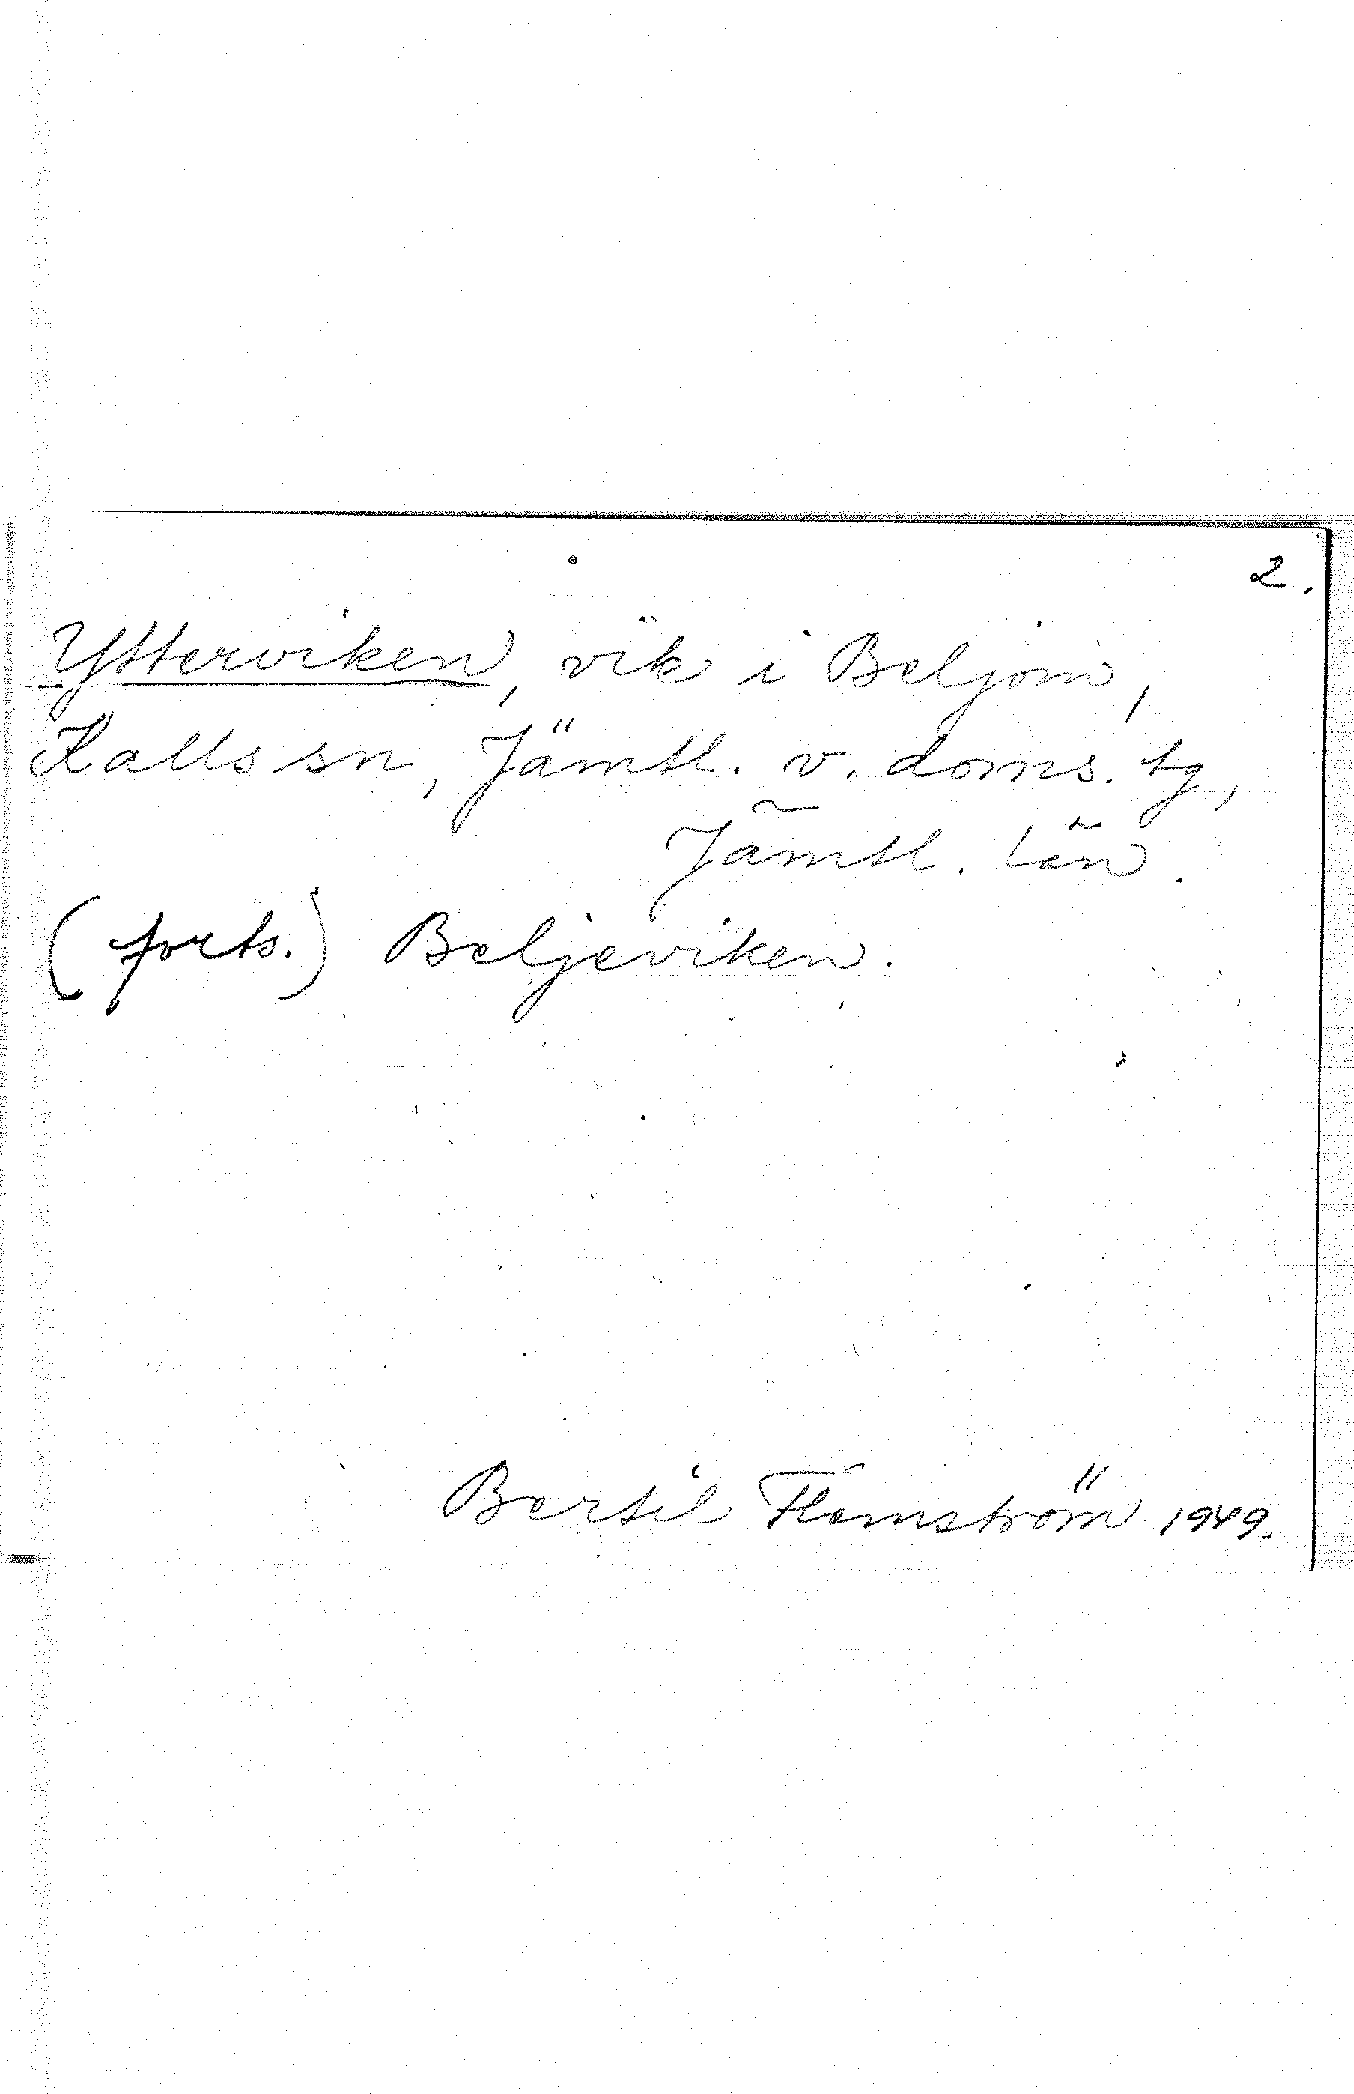 2.
Ytterviken, vik i Beljom,
Kalls sn, Jämtl. v. doms. tg,
Jämtl. län.
(forts.) Beljeviken.
Bertil Flemström 1949.